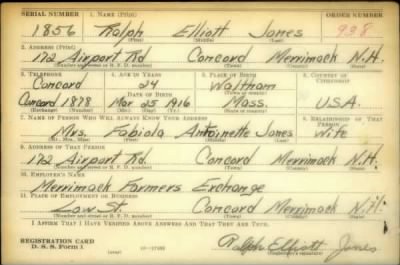 SERIAL NUMBER 1. NAME (Print) ORDER NUMBER
1856 Ralph Elliott Jones 938
(First) (Middle) (Last)
2. ADDRESS (Print)
172 Airport Rd Concord Merrimack N.H.
(Number and street or R. F. D. number) (Town) (County) (State)
3. TELEPHONE 4. AGE IN YEARS 5. PLACE OF BIRTH 6. COUNTRY OF CITIZENSHIP
Concord 24 Waltham
DATE OF BIRTH (Town or county)
Concord 1878 Mar 25 1916 Mass. U.S.A.
(Exchange) (Number) (Mo.) (Day) (Yr.) (State or country)
7. NAME OF PERSON WHO WILL ALWAYS KNOW YOUR ADDRESS 8. RELATIONSHIP OF THAT PERSON
Mrs. Fabiola Antoinette Jones Wife
(Mr., Mrs., Miss) (First) (Middle) (Last)
9. ADDRESS OF THAT PERSON
172 Airport Rd. Concord Merrimack N.H.
(Number and street or R. F. D. number) (Town) (County) (State)
10. EMPLOYER'S NAME
Merrimack Farmers Exchange
11. PLACE OF EMPLOYMENT OR BUSINESS
Low St. Concord Merrimack N.H.
(Number and street or R. F. D. number) (Town) (County) (State)
I AFFIRM THAT I HAVE VERIFIED ABOVE ANSWERS AND THAT THEY ARE TRUE.
REGISTRATION CARD
D. S. S. Form 1 Ralph Elliott Jones
(Registrant's signature)